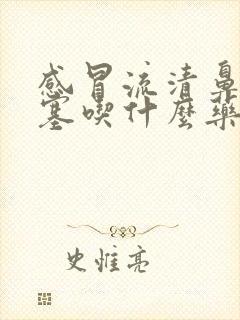 感冒流清鼻
塞喫什麼藥
史惟亮